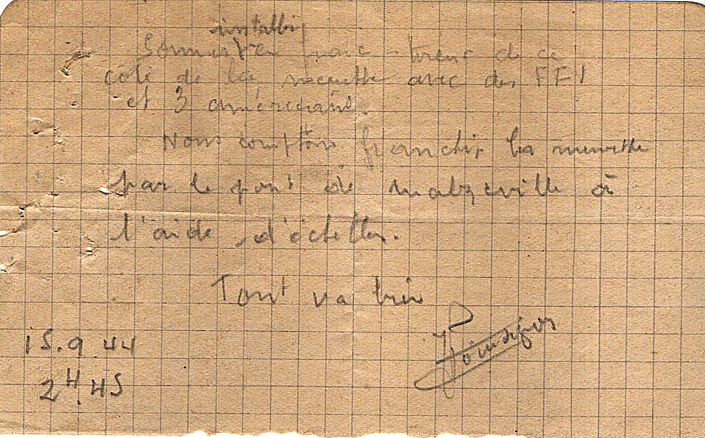 installés
Sommes en franc-tireur de ce
coté de la meurthe avec des FFI
et 3 américains.
Nous comptons franchir la meurthe
par le pont de malzeville à
l'aide d'échelles.
Tout va bien
15.9.44
2H.45